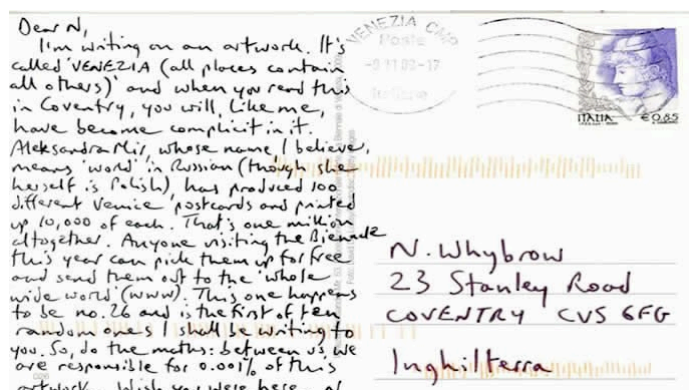 Dear N,
I'm writing on an artwork. It's
called 'VENEZIA (all places contain
all others)' and when you read this
in Coventry, you will, like me,
have become complicit in it.
Aleksandra Mir, whose name, I believe,
means 'world' in Russian (though she
herself is Polish), has produced 100
different Venice postcards and printed
up 10,000 of each. That's one million
altogether. Anyone visiting the Biennale
this year can pick them up for free
and send them out to the 'whole
wide world' (www). This one happens
to be no. 26 and is the first of ten
random ones I shall be writing to
you. So, do the maths: between us, we
are responsible for 0.001% of this
artwork. Wish you were here
VENEZIA CMP
Poste
Italiane
ITALIA €0,85
N. Whybrow
23 Stanley Road
COVENTRY CV5 6FG
Inghilterra